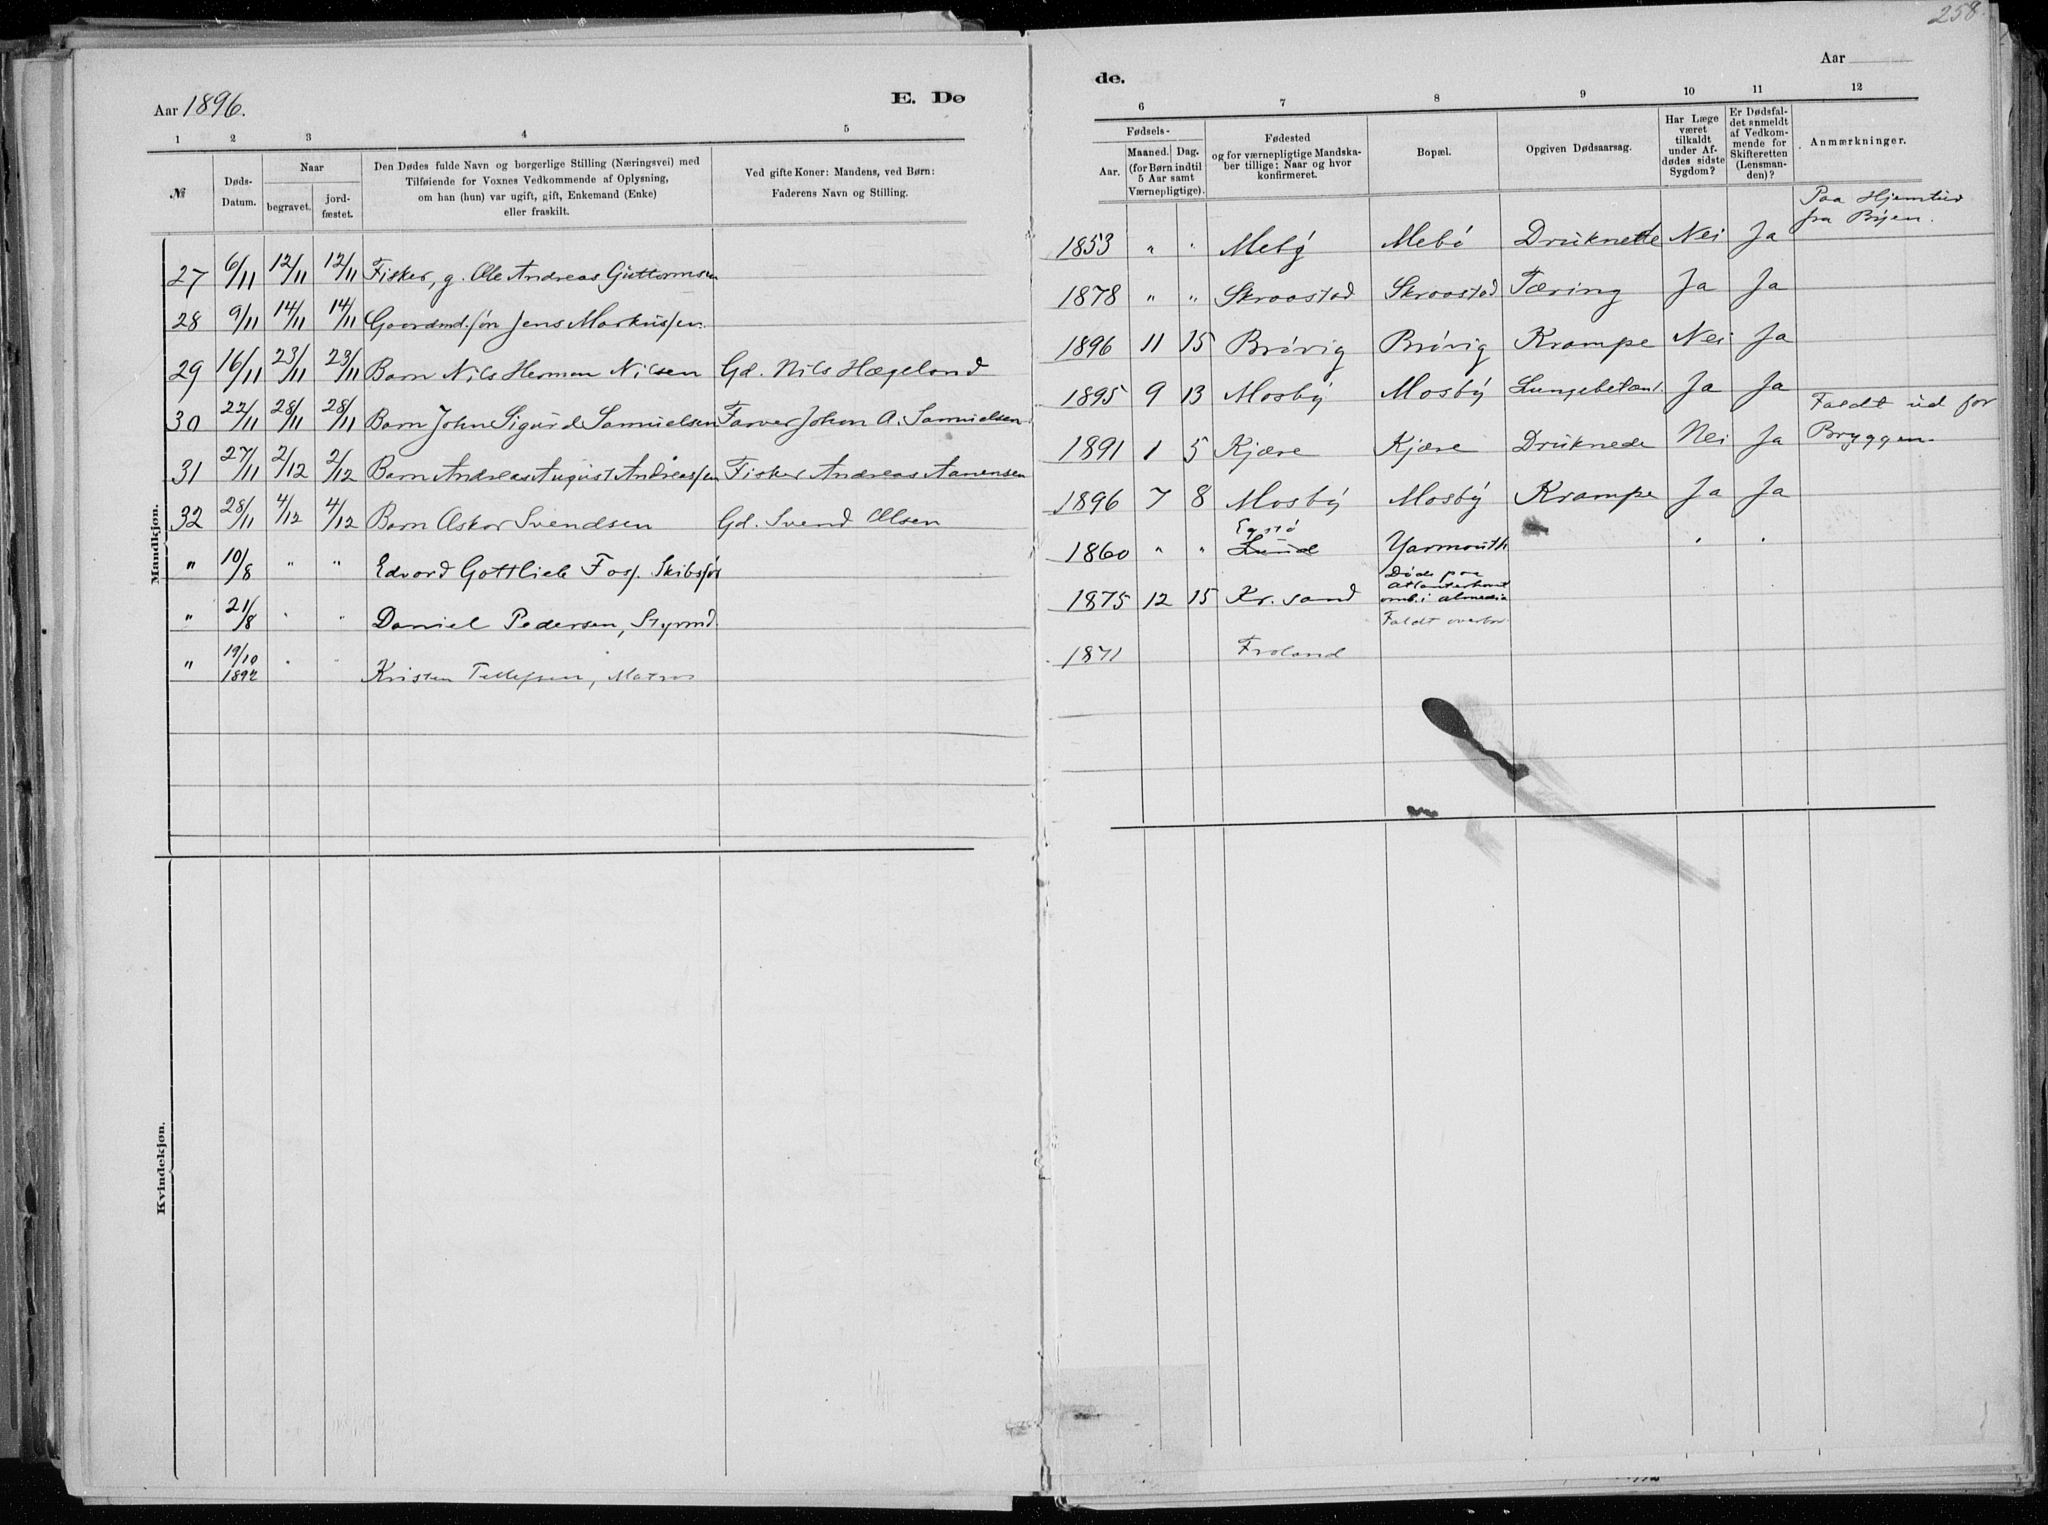 258.
Aar 1896.
E. Dø
de.
Aar
1 2 3 4 5
6 7 8 9 10 11 12
№
Døds-
Datum.
Naar
begravet.
jord-
fæstet.
Den Dødes fulde Navn og borgerlige Stilling (Næringsvei) med
Tilføiende for Voxnes Vedkommende af Oplysning,
om han (hun) var ugift, gift, Enkemand (Enke)
eller fraskilt.
Ved gifte Koner: Mandens, ved Børn:
Faderens Navn og Stilling.
Fødsels-
Aar.
Maaned. Dag.
(for Børn indtil
5 Aar samt
Værnepligtige).
Fødested
og for værnepligtige Mandska-
ber tillige: Naar og hvor
konfirmeret.
Bopæl.
Opgiven Dødsaarsag.
Har Læge
været
tilkaldt
under Af-
dødes sidste
Sygdom?
Er Dødsfal-
det anmeldt
af Vedkom-
mende for
Skifteretten
(Lensman-
den)?
Anmærkninger.
Mandkjøn.
27 6/11 12/11 12/11 Fisker, g. Ole Andreas Guttormsen
1853 " " Mebø Mebø Druknede Nei Ja Paa Hjemtur
fra Byen.
28 9/11 14/11 14/11 Gaardmd. søn Jens Markussen.
1878 " " Skraastad Skraastad Tæring Ja Ja
29 16/11 23/11 23/11 Barn Nils Herman Nilsen Gd. Nils Hægeland
1896 11 15 Brøvig Brøvig Krampe Nei Ja
30 22/11 28/11 28/11 Barn John Sigurd Samuelsen Farver Johan A. Samuelsen
1895 9 13 Mosby Mosby Lungebetænd. Ja Ja
31 27/11 2/12 2/12 Barn Andreas August Andreassen Fisker Andreas Aanensen
1891 1 5 Kjære Kjære Druknede Nei Ja Faldt ud for
Bryggen.
32 28/11 4/12 4/12 Barn Askar Svendsen Gd. Svend Olsen
1896 7 8 Mosby Mosby Krampe Ja Ja
" 10/8 " " Edvard Gottlieb Foss. Skibsfør
1860 " " Lund Yarmouth
" 21/8 " " Daniel Pedersen, Styrmd.
1875 12 15 Kr. sand Døde paa
Atlanterhavet
omb. i Almedia
" 19/10
1892 " " Kristen Tellefsen, Matros
1871 Froland Faldt overbor
Kvindekjøn.